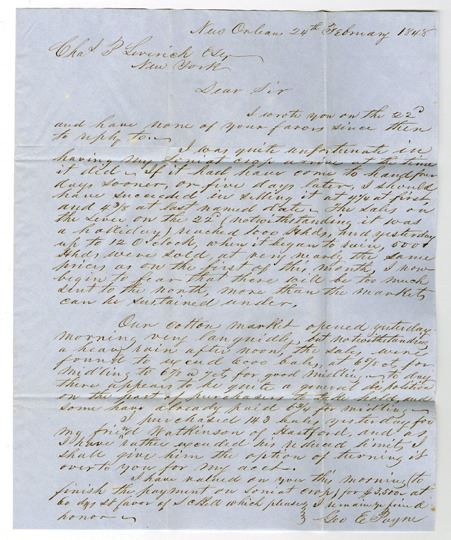 New Orleans 24th February 1848
Chas P Leverich Esq
New York
Dear Sir
I wrote you on the 22d
and have none of your favors since then
to reply to.
I was quite unfortunate in
having my crop arrive at the time
it did. If it had have come to hand four
days sooner, or five days later, I should
have succeeded in selling it at 4¼ at first
and at last named date. The sales on
the Levee on the 22d (notwithstanding it was
a holliday) reached 1000 Hhds, and yesterday
up to 12 O'clock, when it began to rain, 500
Hhds were sold at very nearly the same
prices as on the first of this month, I now
begin to fear that there will be too much
sent to the month, more than the market
can be sustained under.
Our cotton market opened yesterday
morning very languidly, but notwithstanding
a heavy rain after noon, the sales were
found to exceed 6000 bales, at for
midling to for good midlin. To day
there appears to be quite a general disposition
on the part of purchasers to take hold, and
some have already paid for midling.
I purchased 143 bales yesterday for
my friend Watkinson of Hartford, and as
I have rather exceeded his reduced limits, I
shall give him the option of turning it
over to you for my acct.
I have valued on you this morning (to
finish the payment on crop) for $3,500 at
60 days favor of which please
honor
I remain your friend
Geo E Payne